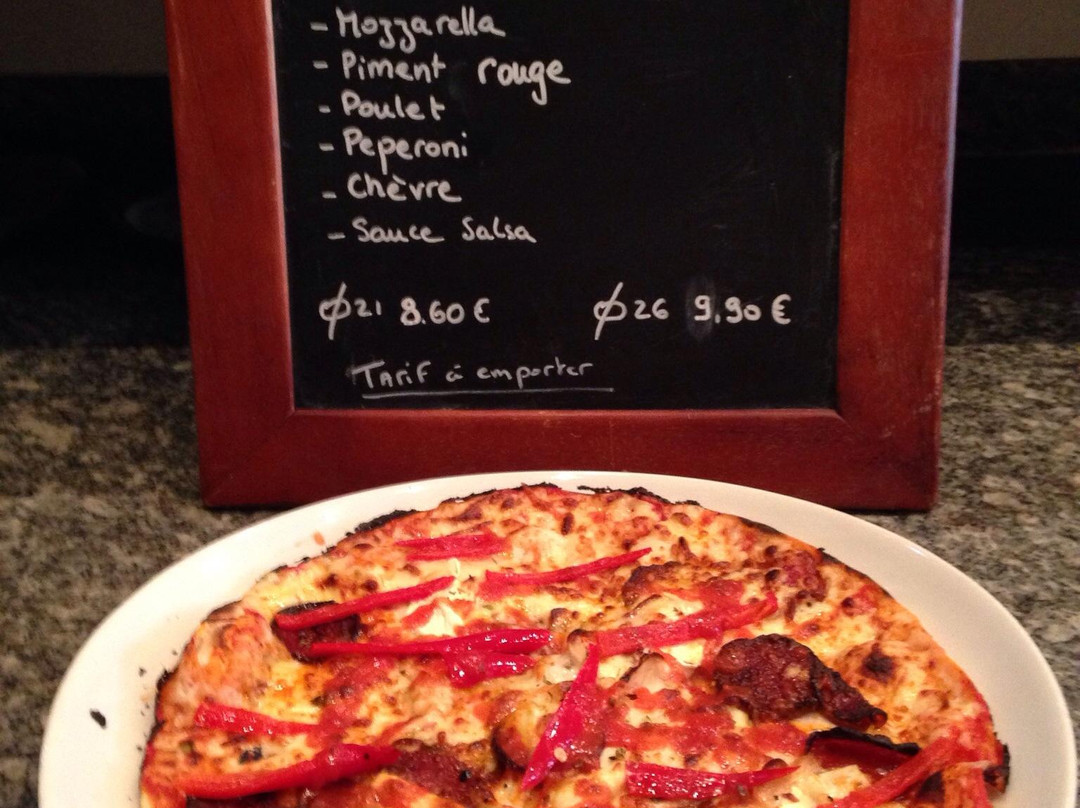 - Mozzarella
- Piment rouge
- Poulet
- Peperoni
- Chèvre
- Sauce Salsa
ϕ21 8.60 € ϕ26 9,90 €
Tarif à emporter